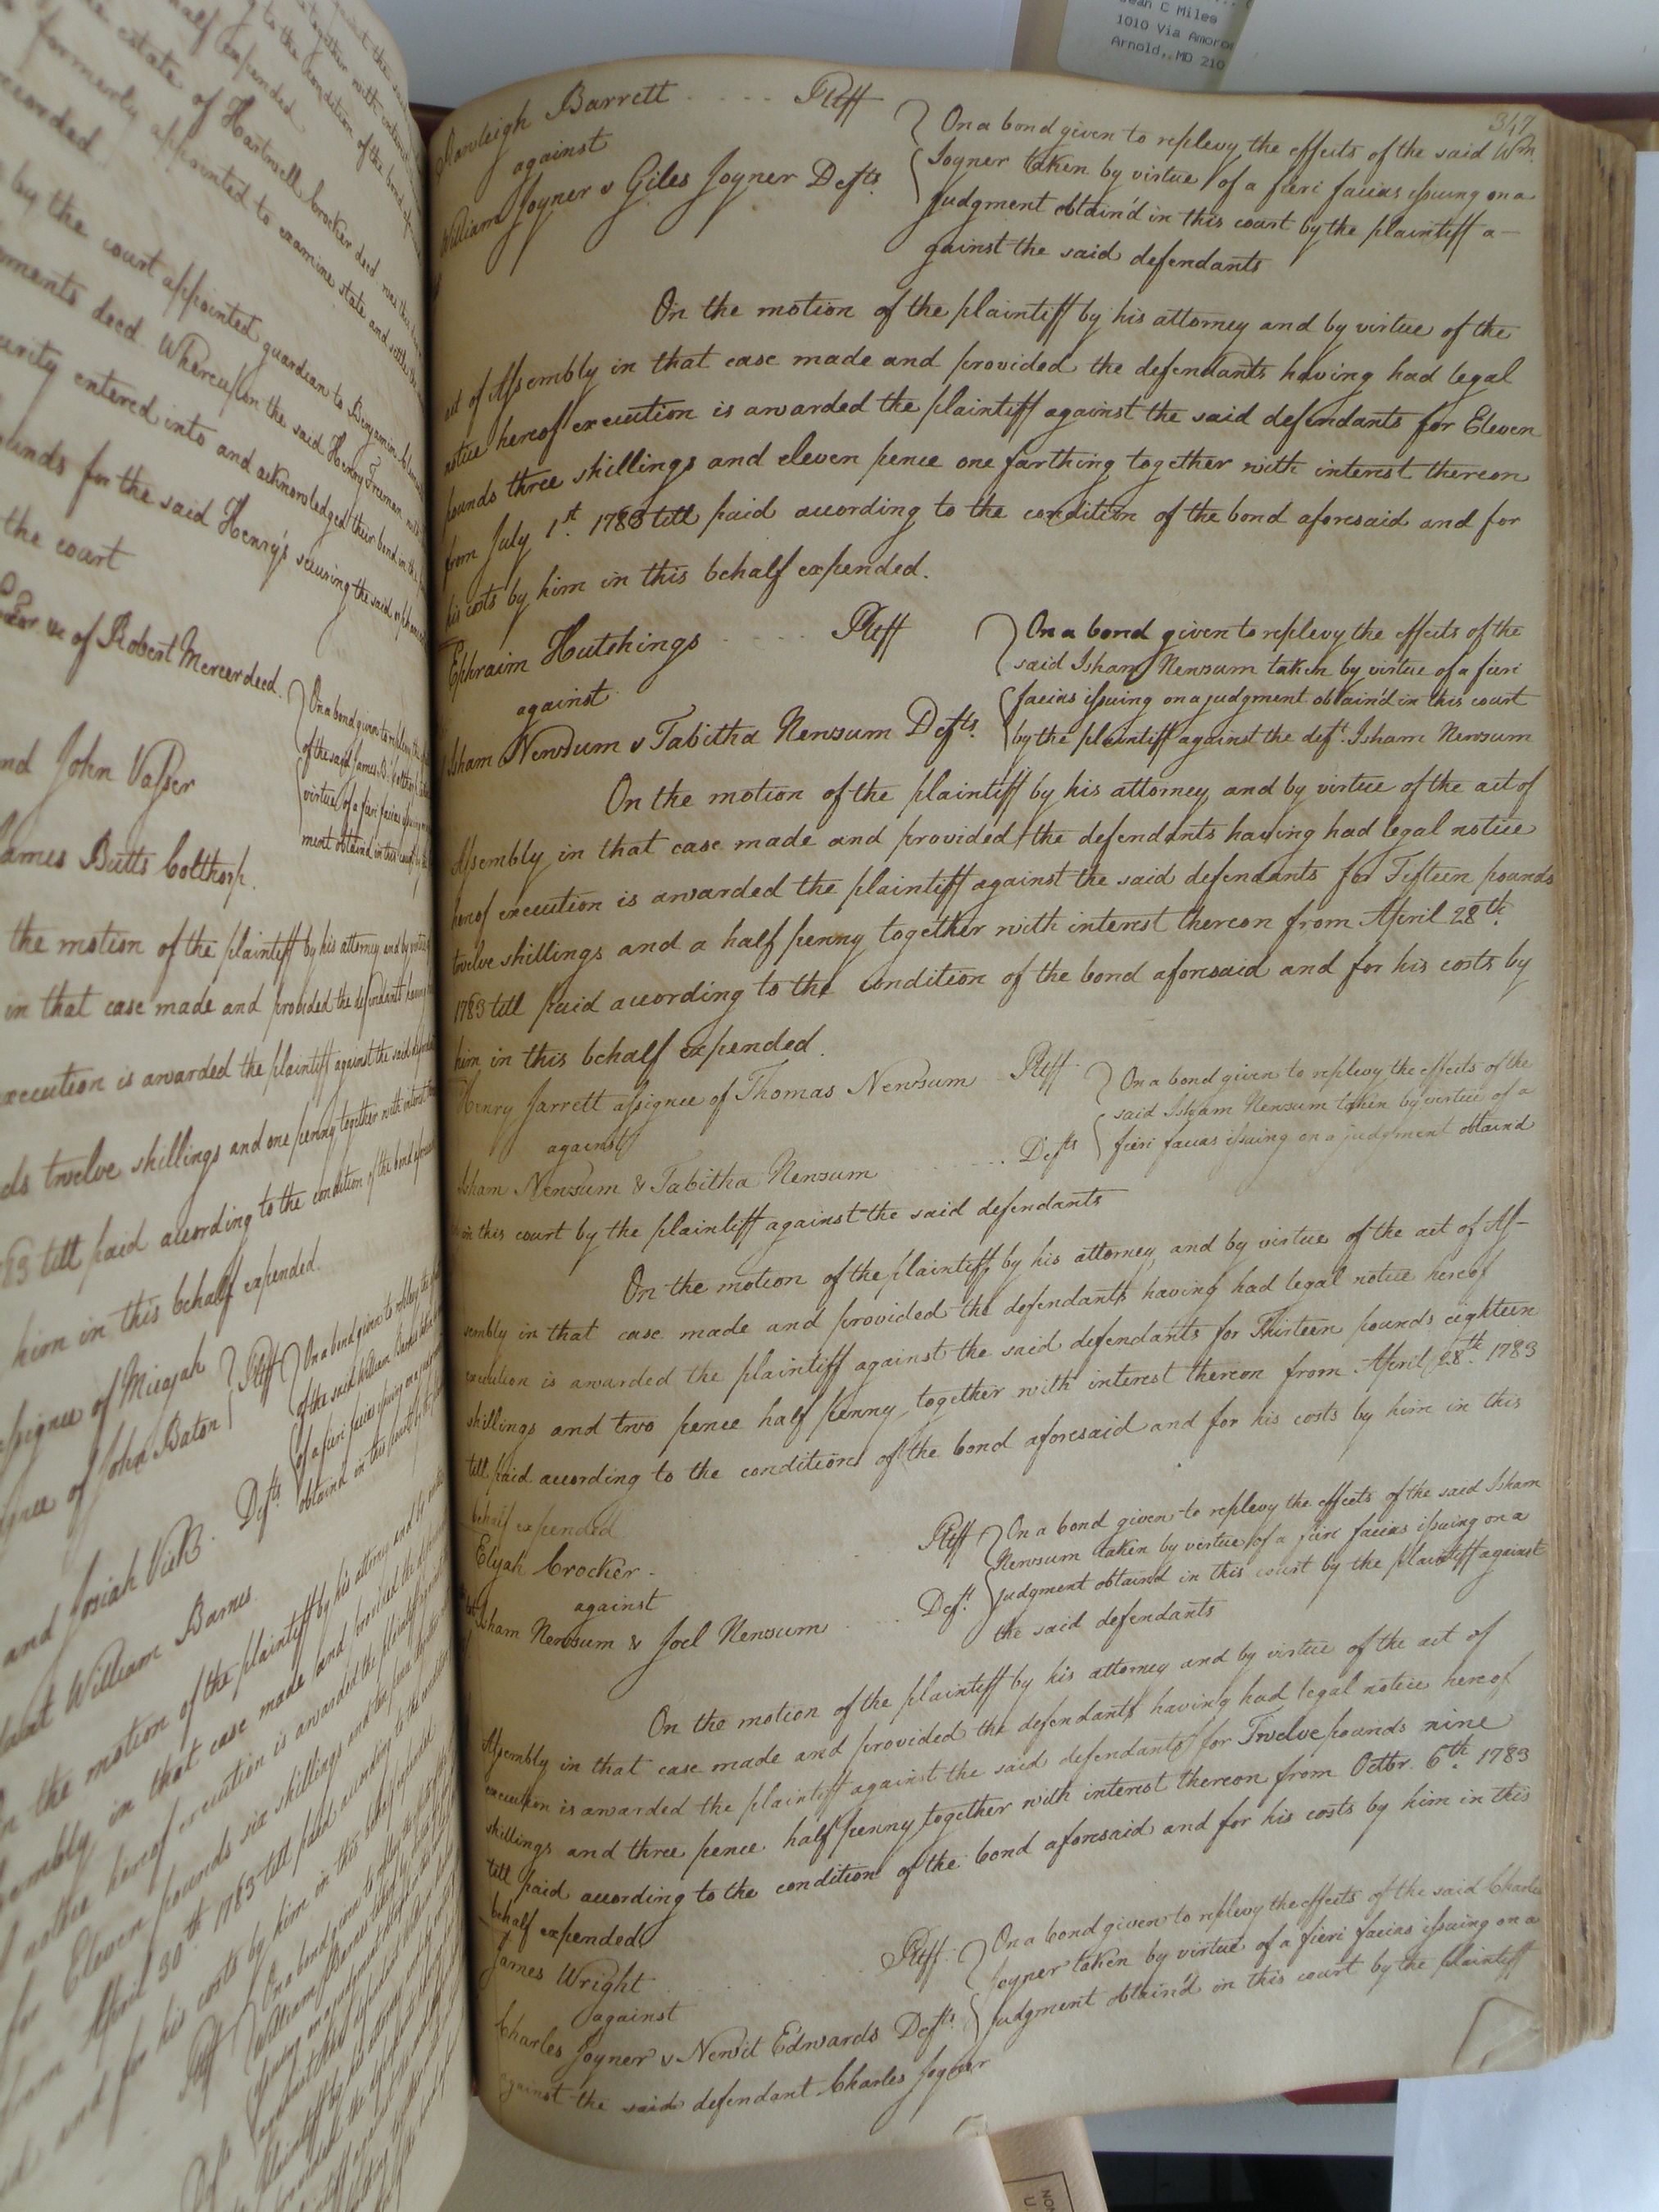 Jean C Miles
1010 Via Amoro
Arnold, MD 210
347
Rawleigh Barrett Pltff
against
William Joyner v Giles Joyner Defts.
On a bond given to replevy the effects of the said Wm.
Joyner taken by virtue of a fieri facias issuing on a
judgment obtain'd in this court by the plaintiff a-
gainst the said defendants
On the motion of the plaintiff by his attorney and by virtue of the
act of Assembly in that case made and provided the defendants having had legal
notice hereof execution is awarded the plaintiff against the said defendants for Eleven
pounds three shillings and eleven pence one farthing together with interest thereon
from July 1st. 1783 till paid according to the condition of the bond aforesaid and for
his costs by him in this behalf expended.
Ephraim Hutchings Pltff
against
Isham Newsum v Tabitha Newsum Defts.
On a bond given to replevy the effects of the
said Isham Newsum taken by virtue of a fieri
facias issuing on a judgment obtain'd in this court
by the plaintiff against the deft. Isham Newsum
On the motion of the plaintiff by his attorney, and by virtue of the act of
Assembly in that case made and provided the defendants having had legal notice
hereof execution is awarded the plaintiff against the said defendants for Fifteen pounds
twelve shillings and a half penny together with interest thereon from April 28th.
1783 till paid according to the condition of the bond aforesaid and for his costs by
him in this behalf expended.
Henry Jarrett assignee of Thomas Newsum Pltff
against
Isham Newsum & Tabitha Newsum Defts
On a bond given to replevy the effects of the
said Isham Newsum taken by virtue of a
fieri facias issuing on a judgment obtaind
in this court by the plaintiff against the said defendants
On the motion of the plaintiff, by his attorney, and by virtue of the act of As-
sembly in that case made and provided the defendants having had legal notice hereof
execution is awarded the plaintiff against the said defendants for Thirteen pounds eighteen
shillings and two pence half penny together with interest thereon from April 28th. 1783
till paid according to the condition of the bond aforesaid and for his costs by him in this
behalf expended
Elijah Crocker Pltff
against
Isham Newsum & Joel Newsum Deft.
On a bond given to replevy the effects of the said Isham
Newsum taken by virtue of a fieri facias issuing on a
judgment obtaind in this court by the plaintiff against
the said defendants
On the motion of the plaintiff by his attorney and by virtue of the act of
Assembly in that case made and provided the defendants having had legal notice hereof
execution is awarded the plaintiff against the said defendants for Twelve pounds nine
shillings and three pence half penny together with interest thereon from Octbr. 6th. 1783
till paid according to the condition of the bond aforesaid and for his costs by him in this
behalf expended
James Wright Pltff
against
Charles Joyner v Newit Edwards Defts.
On a bond given to replevy the effects of the said Charles
Joyner taken by virtue of a fieri facias issuing on a
judgment obtain'd in this court by the plaintiff
against the said defendant Charles Joyner
estate of Hartwell Crocker deced
formerly appointed to examine state and settle
by the court appointed guardian to Benjamin
deced Whereupon the said Henry
entered into and acknowledged their bond in the
for the said Henry's securing the said
the court
of Robert Mercer deced.
John Vasser
James Butts Colthorp.
the motion of the plaintiff by his attorney and by
in that case made and provided the defendants having
execution is awarded the plaintiff against the said
twelve shillings and one penny together with interest
till paid according to the condition of the bond
him in this behalf expended
assignee of Micajah Pltff
of John Baton
and Josiah Vick Defts
William Barnes
the motion of the plaintiff by his attorney and by
in that case made and provided the
notice hereof execution is awarded the plaintiff
for Eleven pounds six shillings and
from April 30th 1783 till paid according to the
and for his costs by him in this behalf expended